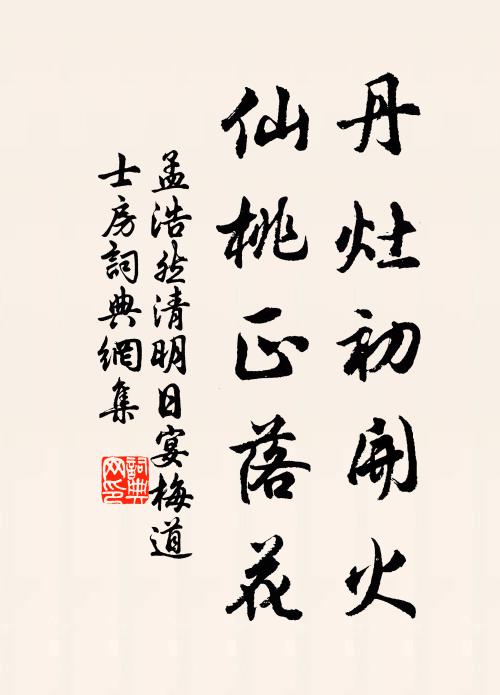 丹灶初開火
仙桃正落花
孟浩然清明日宴梅道
士房詞典網集
詞典
网印